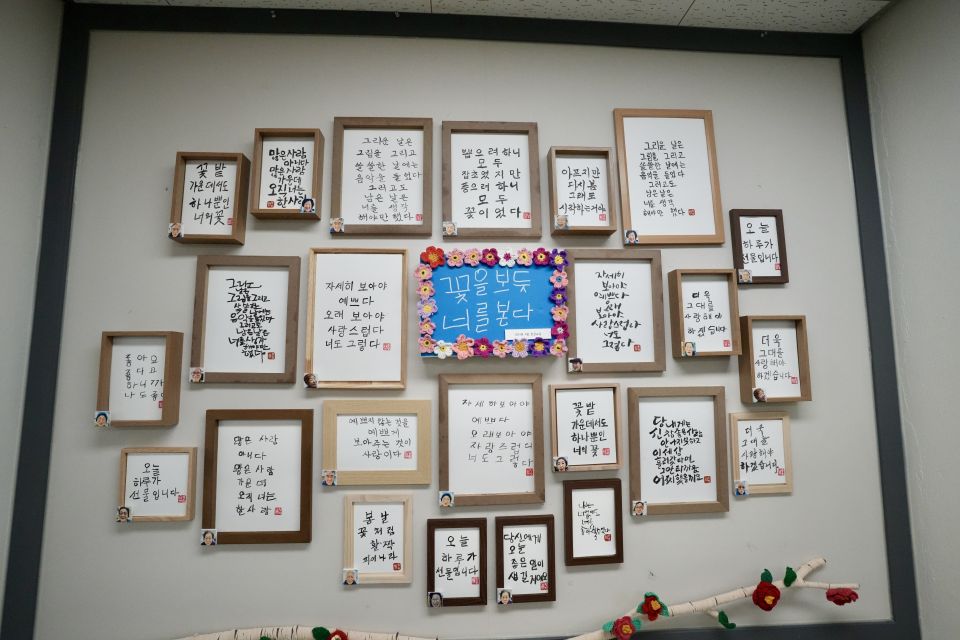 꽃밭
가운데서도
하나뿐인
너의 꽃
많은사람
아니다
많은사람
가운데
오직너는
한사람
그리운 날은
그림을 그리고
쓸쓸한 날에는
음악을 들었다
그러고도
남은 날은
너를 생각
해야만 했다
뽑으려 하니
모두
잡초였지만
품으려 하니
모두
꽃이었다
아프지만
다시 봄
그래도
사랑하는거야
그리운 날은
그림을 그리고
쓸쓸한 날에는
음악을 들었다
그러고도
남은 날은
너를 생각
해야만 했다
오늘
하루가
선물입니다
그리운
날은
그림을 그리고
쓸쓸한
날에는
음악을 들었다
그러고도
남은 날은
너를 생각
해야만
했다
자세히 보아야
예쁘다
오래 보아야
사랑스럽다
너도 그렇다
꽃을 보듯
너를 본다
자세히
보아야
예쁘다
오래
보아야
사랑스럽다
너도
그렇다
더욱
그대를
사랑해야
하겠습니다
더욱
그대를
사랑해야
하겠습니다
좋아요
좋다고
하니까
나도 좋다
많은 사람
아니다
많은 사람
가운데
오직 너는
한사람
예쁘지 않는 것을
예쁘게
보아주는 것이
사랑이다
자세히보아야
예쁘다
오래보아야
사랑스럽다
너도 그렇다
꽃밭
가운데서도
하나뿐인
너의 꽃
이 세상
더욱
그대를
사랑해야
하겠습니다
오늘
하루가
선물입니다
봄날
꽃처럼
활짝
피어나라
오늘
하루가
선물입니다
당신에게
오늘
좋은 일이
생길거예요
나는